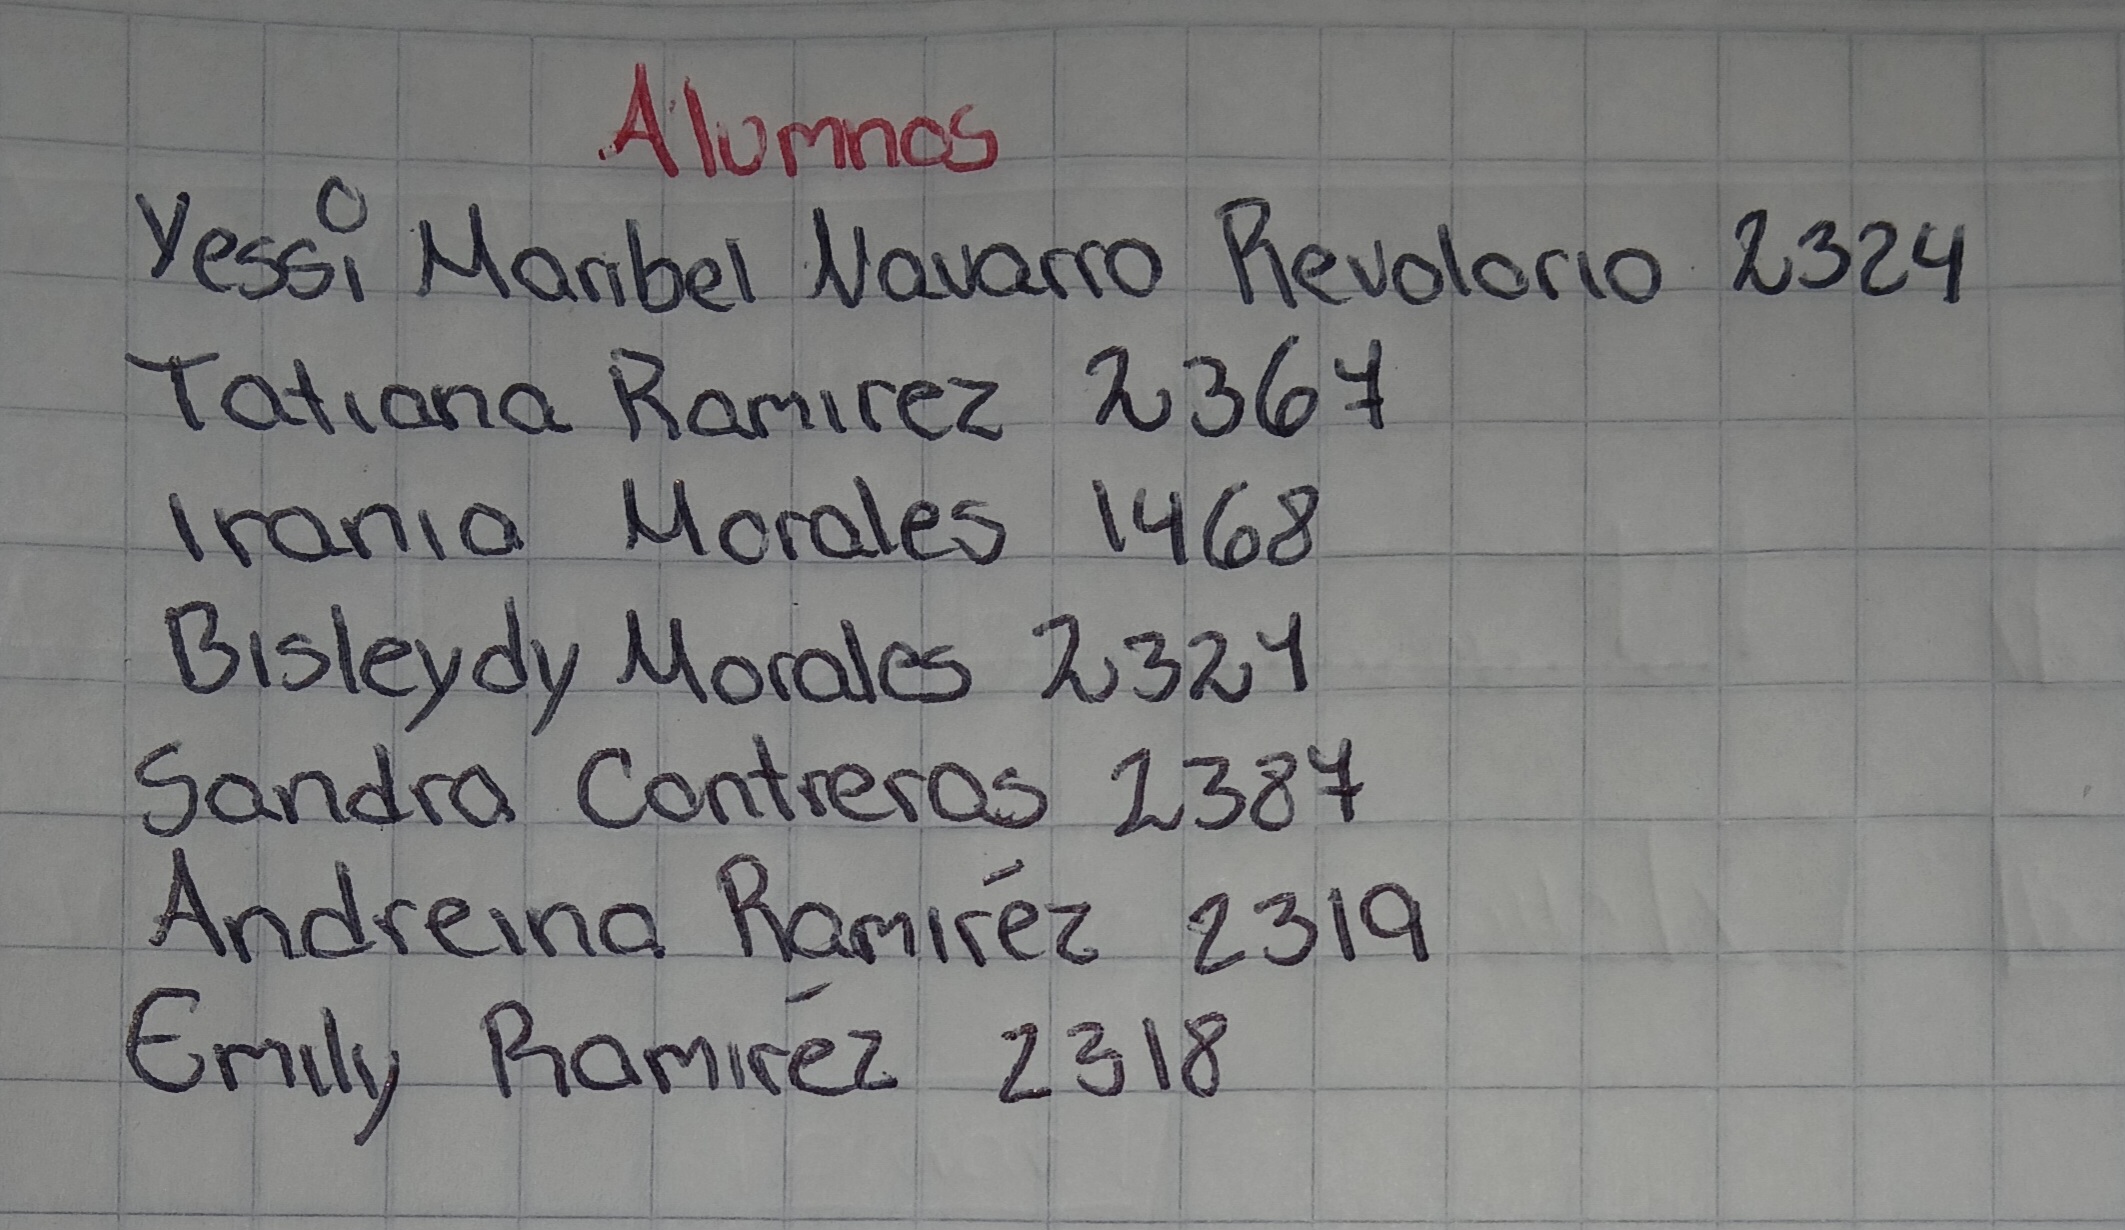 Alumnos
Yessi Maribel Navarro Revolorio 2324
Tatiana Ramirez 2367
Irania Morales 1468
Bisleydy Morales 2321
Sandra Contreras 2387
Andreina Ramiréz 2319
Emily Ramiréz 2318